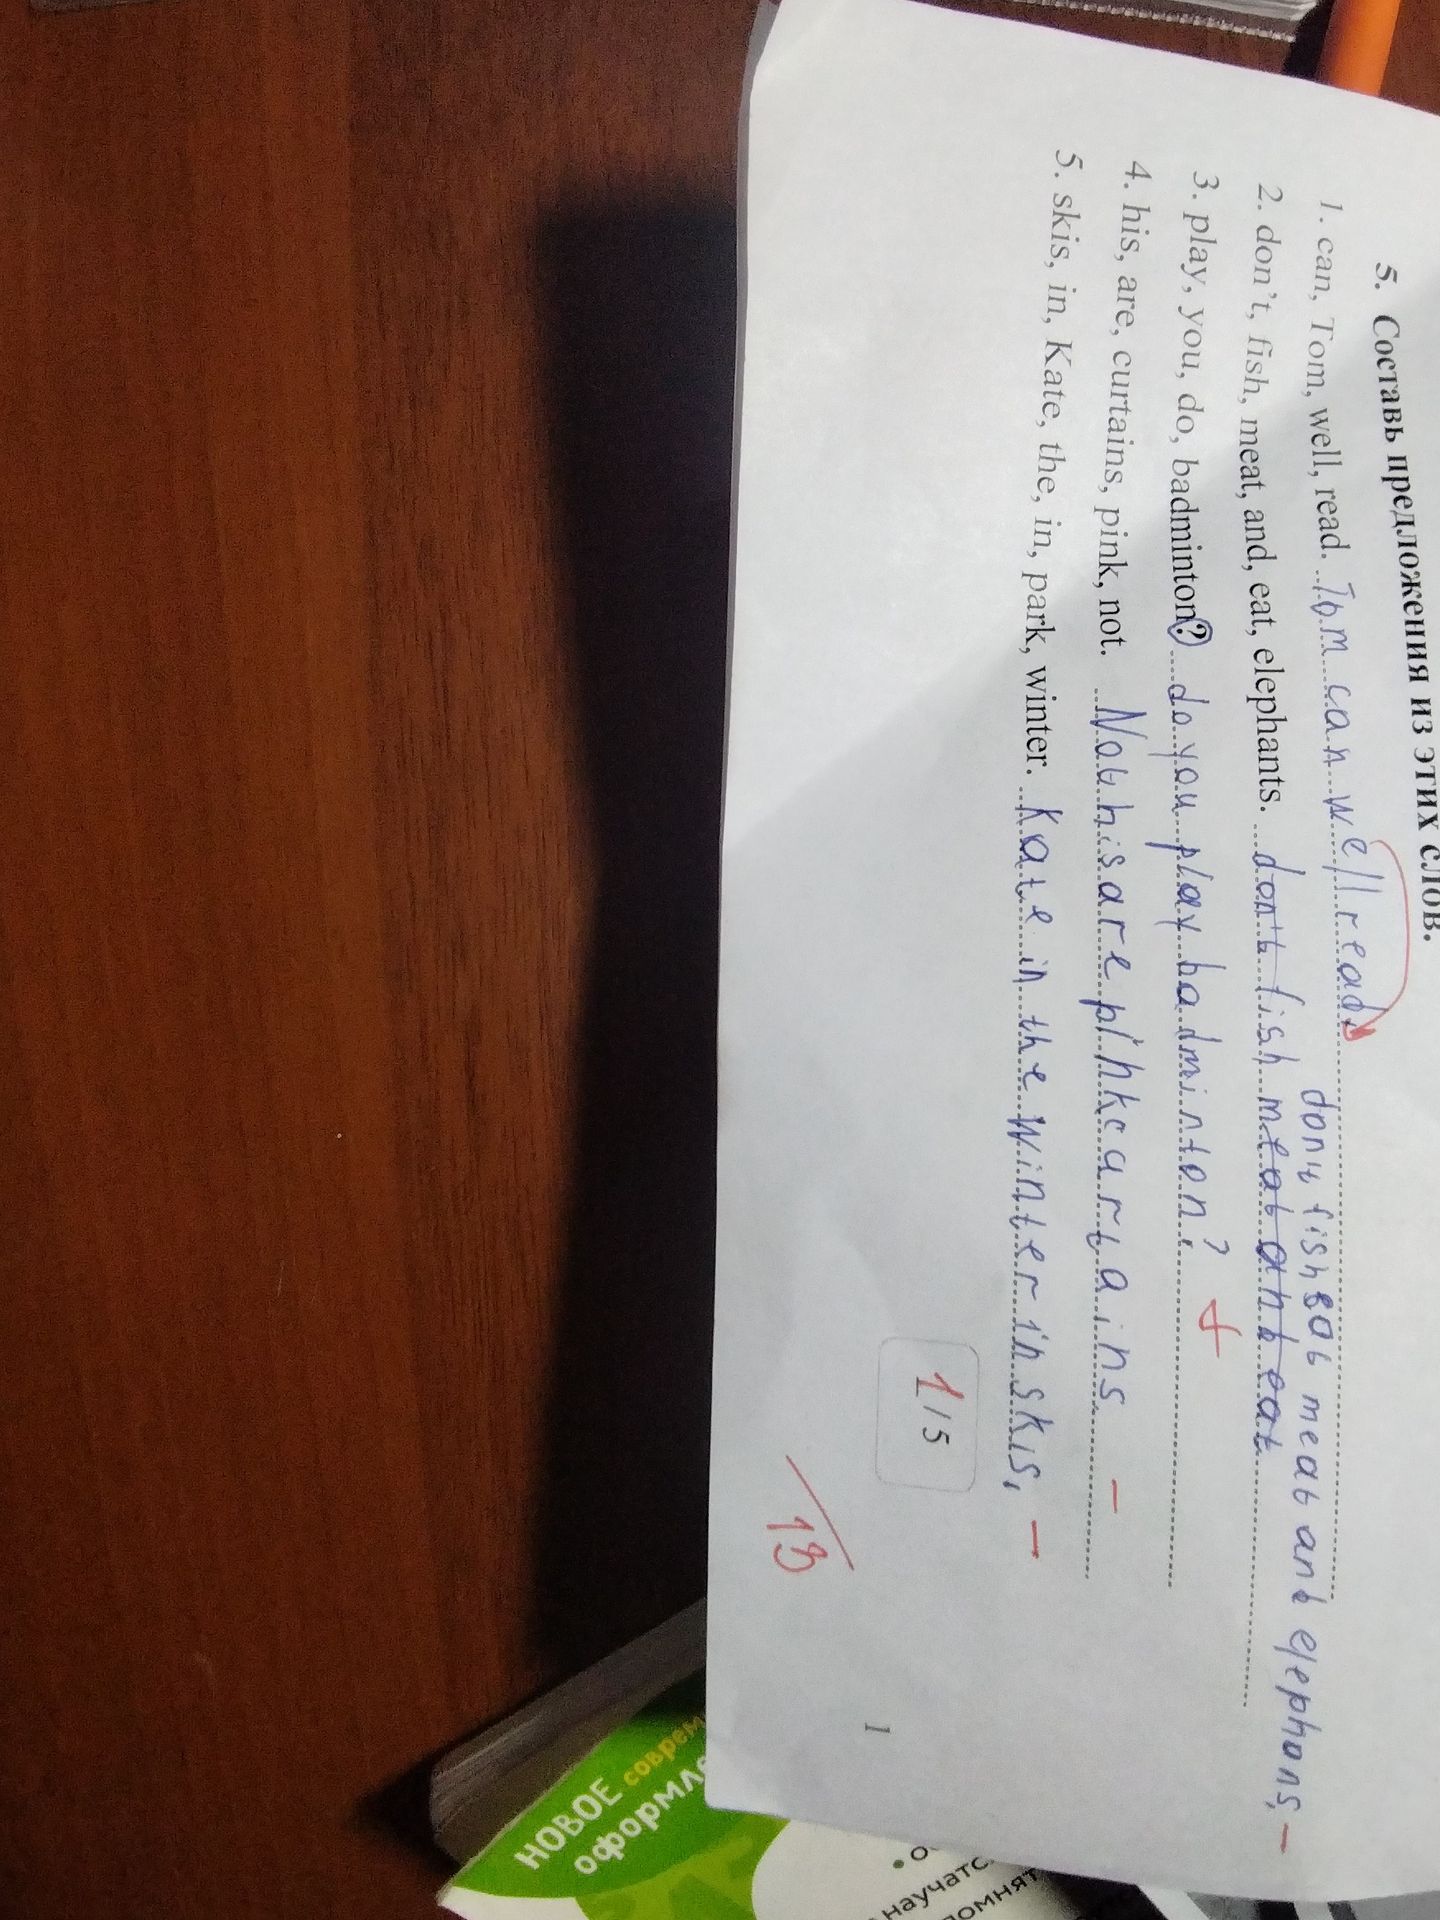 5. Составь предложения из этих слов.
1. can, Tom, well, read. Tom can well read
2. don't, fish, meat, and, eat, elephants. dont fish
dont fish eat meat and elephans. –
3. play, you, do, badminton? do you play badminton? +
4. his, are, curtains, pink, not. Not his are pihk curtains –
5. skis, in, Kate, the, in, park, winter. Kate in the winter in skis. –
1/5
13
1
НОВОЕ соврем
оформле
научатс
помнят